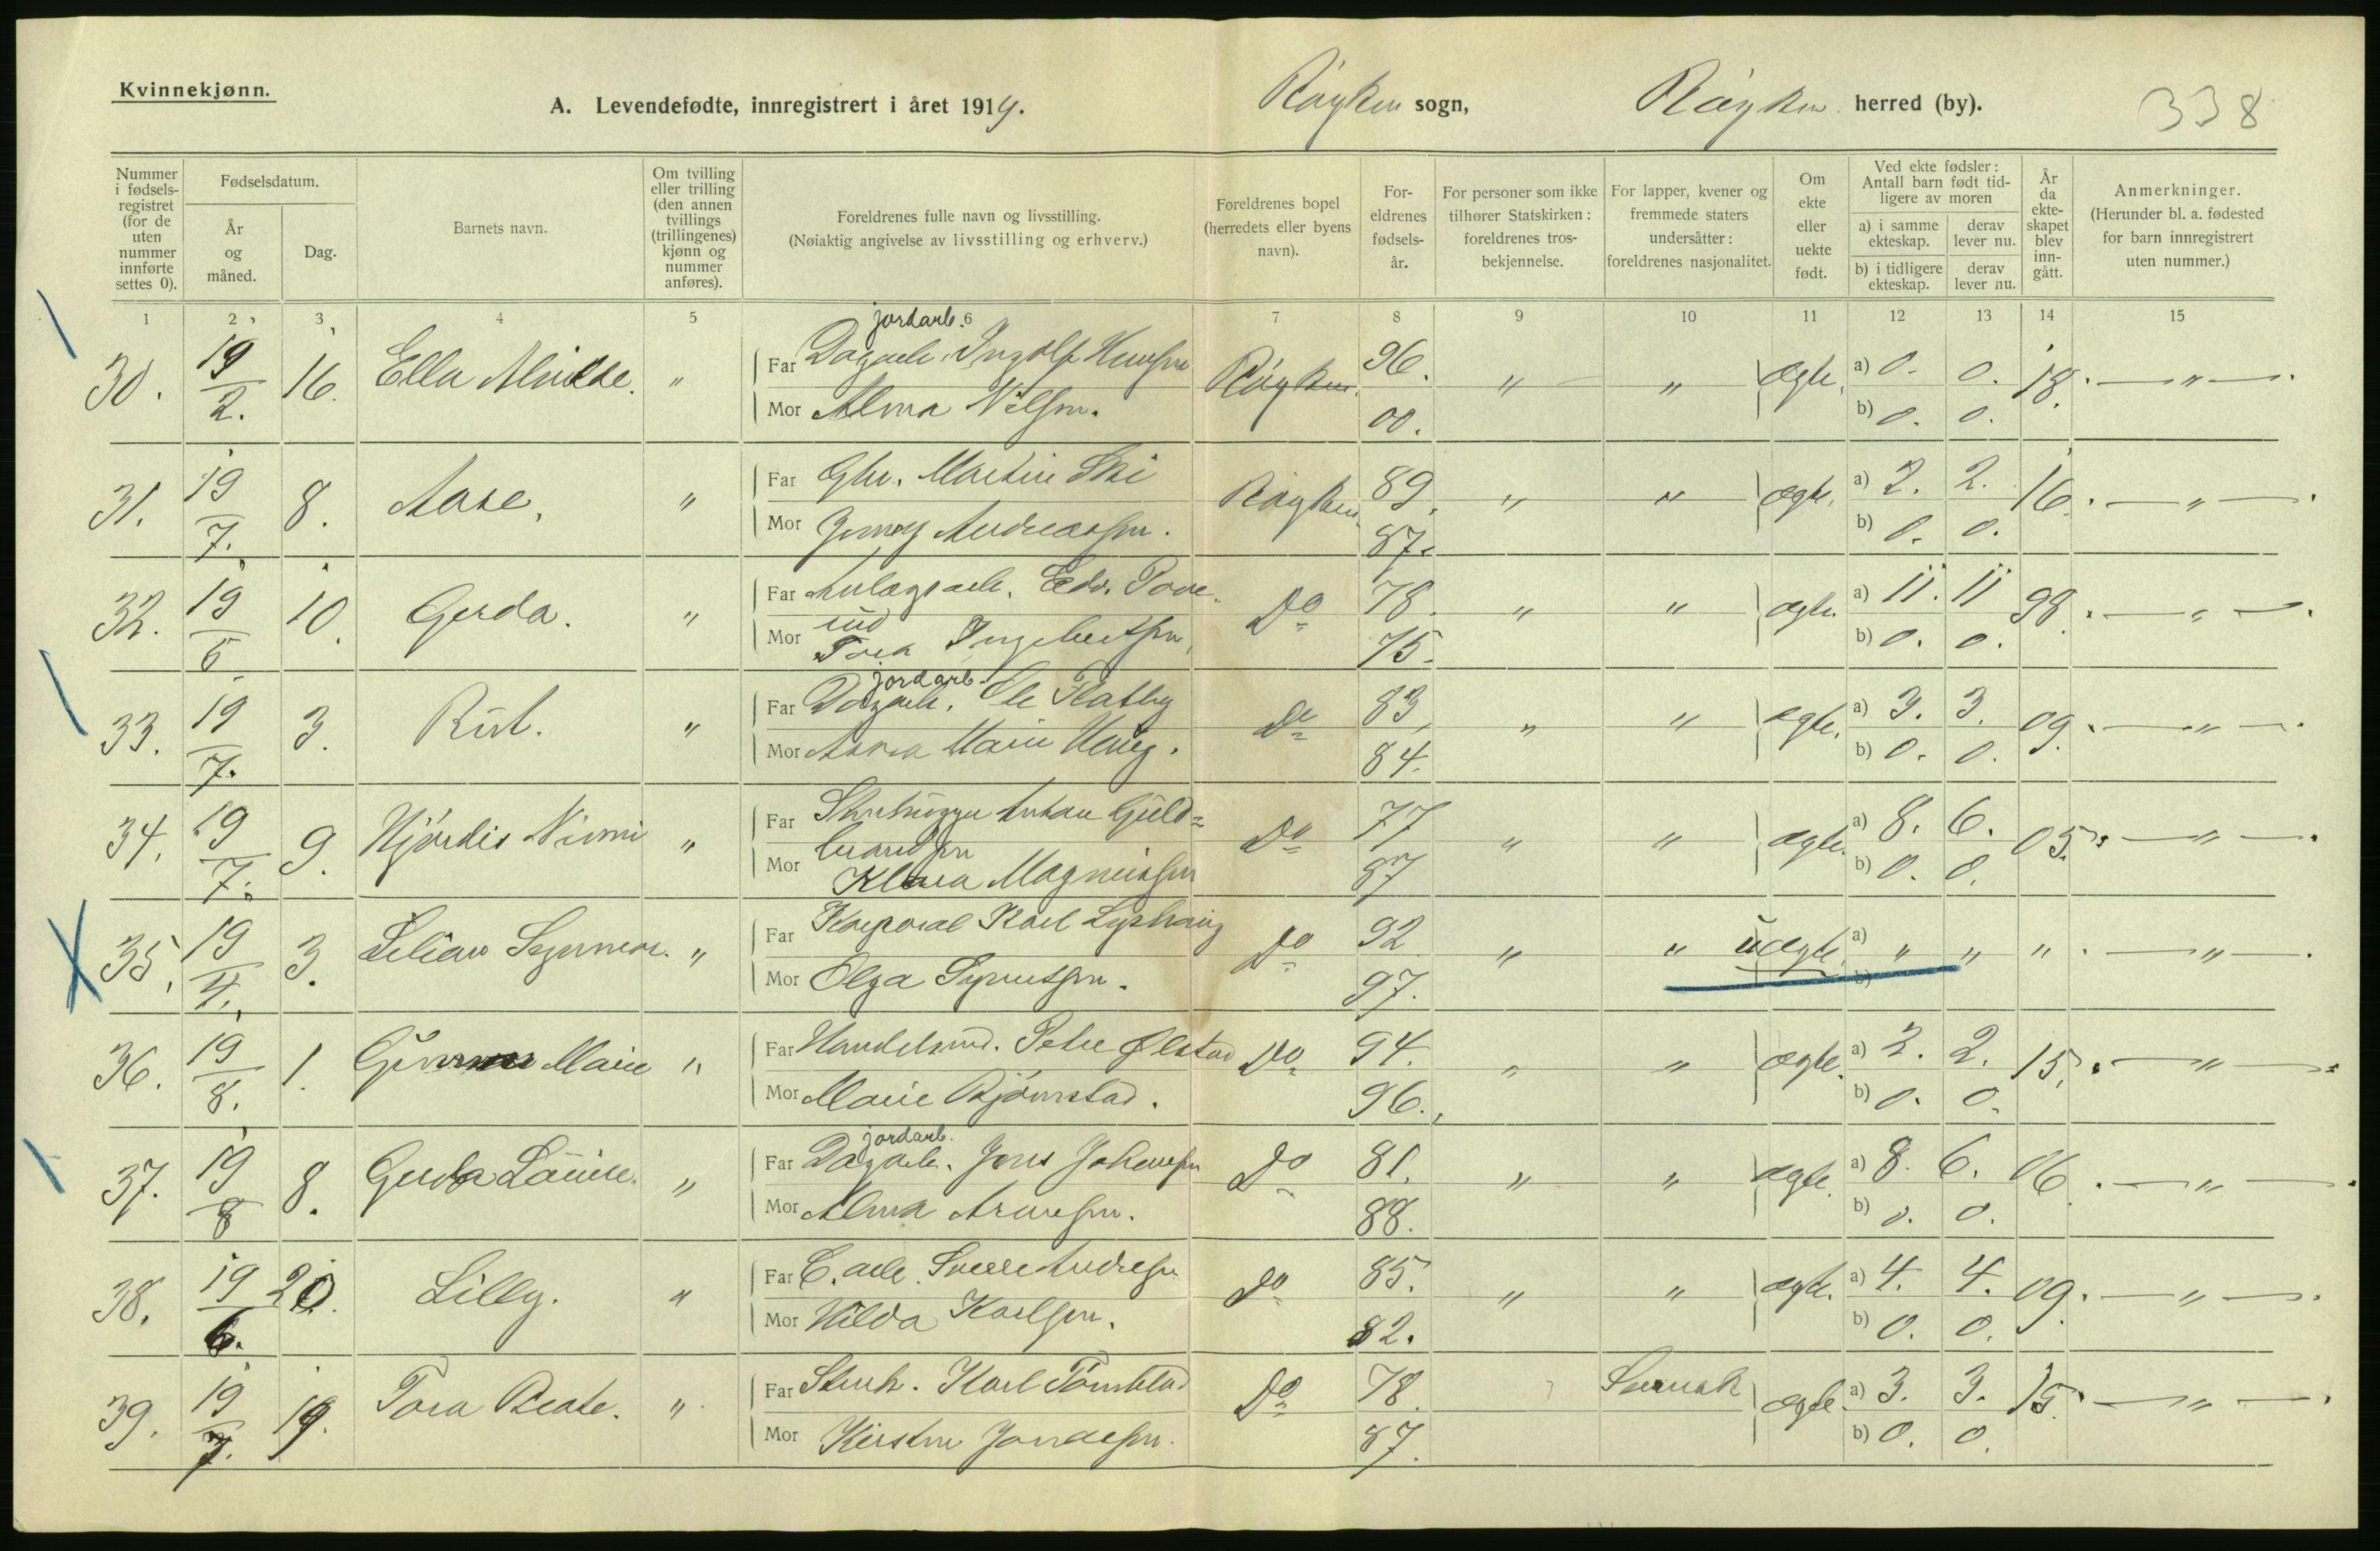 Kvinnekjønn.
A. Levendefødte, innregistrert i året 1919. Røyken sogn, Røyken herred (by). 338
Nummer i fødsels-registret (for de uten nummer innførte settes 0).
Fødselsdatum.
År og måned.
Dag.
Barnets navn.
Om tvilling eller trilling (den annen tvillings (trillingenes) kjønn og nummer anføres).
Foreldrenes fulle navn og livsstilling.
(Nøiaktig angivelse av livsstilling og erhverv.)
Foreldrenes bopel (herredets eller byens navn).
For-eldrenes fødsels-år.
For personer som ikke tilhører Statskirken: foreldrenes tros-bekjennelse.
For lapper, kvener og fremmede staters undersåtter: foreldrenes nasjonalitet.
Om ekte eller uekte født.
Ved ekte fødsler: Antall barn født tid-ligere av moren
a) i samme ekteskap. derav lever nu.
b) i tidligere ekteskap. derav lever nu.
År da ekte-skapet blev inn-gått.
Anmerkninger.
(Herunder bl. a. fødested for barn innregistrert uten nummer.)
1 2 3 4 5 6 7 8 9 10 11 12 13 14 15
jordarb.
30. 19/2. 16. Ella " Far Dagarb. Ingolf Røyken. 96. " " ægte. a) 0. 0. 18. — " —.
Mor Alma Nilsen. 00. b) 0. 0.
31. 19/7. 8. Aase. " Far Gbr. Martin Ski Røyken 89. " " ægte. a) 2. 2. 16. — " —.
Mor Jenny Andreassen. 87. b) 0. 0.
32. 19/6 10. Gerda. " Far Anlægsarb. Edv. Do 78. " " ægte. a) 11. 11 98. — " —.
Mor Tora Ingebretsen 75. b) 0. 0.
jordarb.
33. 19/7. 3. Rut. " Far Dagarb. Ole Flatby Do 83. " " ægte. a) 3. 3. 09. — " —.
Mor Anna Marie Haug. 84. b) 0. 0.
34. 19/7. 9. Hjørdis " Far Stenhugger Anton Guld= Do 77 " " ægte. a) 8. 6. 05. — " —.
brandsen
Mor Klara Magnussen 87 b) 0. 0.
35. 19/4. 3. Lilian " Far Korporal Karl Do 92 " " uægte. a) " " " — " —.
Mor Olga Syvertsen. 97. b)
36. 19/8. 1. Marie " Far Peder Ølstad Do 94. " " ægte. a) 2. 2. 15. — " —
Mor Marie Bjørnstad. 96. b) 0. 0.
jordarb.
37. 19/8 8. Gerda Louise. " Far Dagarb. Jens Johansen Do 81. " " ægte. a) 8. 6. 06. — " —.
Mor Alma Arnesen. 88. b) 0. 0.
38. 19/6. 20. Lilly. " Far C. arb. Sverre Andresen Do 85. " " ægte. a) 4. 4. 09. — " —.
Mor Hilda Karlsen. 82. b) 0. 0.
39. 19/7. 19. Tora Beate. " Far Stenh. Karl Do 78. Svensk ægte a) 3. 3. 15. — " —.
Mor Kirsten 87. b) 0. 0.